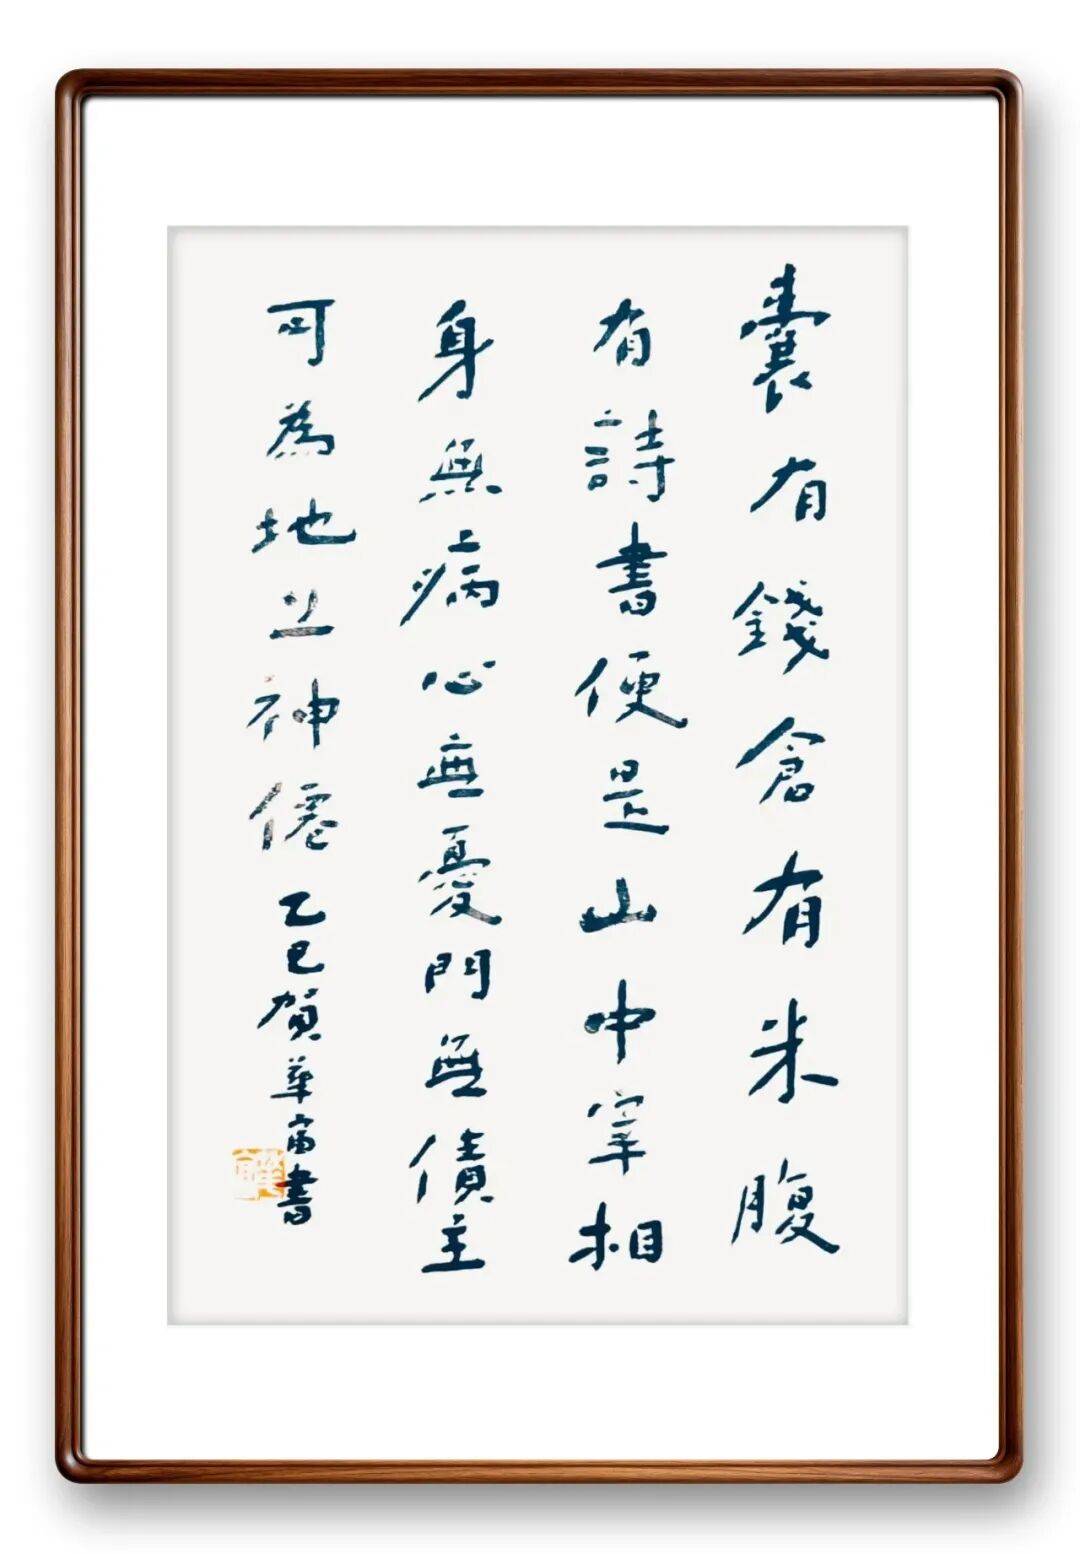 囊有錢倉有米腹
有詩書便是山中宰相
身無病心無憂門無債主
可為地上神僊乙巳賀華富書